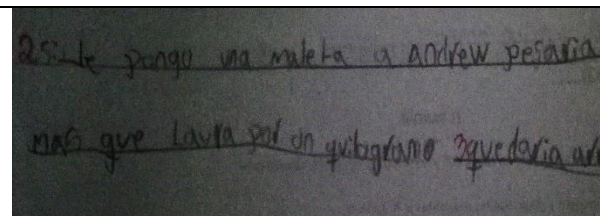 2si le pongo una maleta a andrew pesaria
mas que laura por un quilogramo 3quedaria